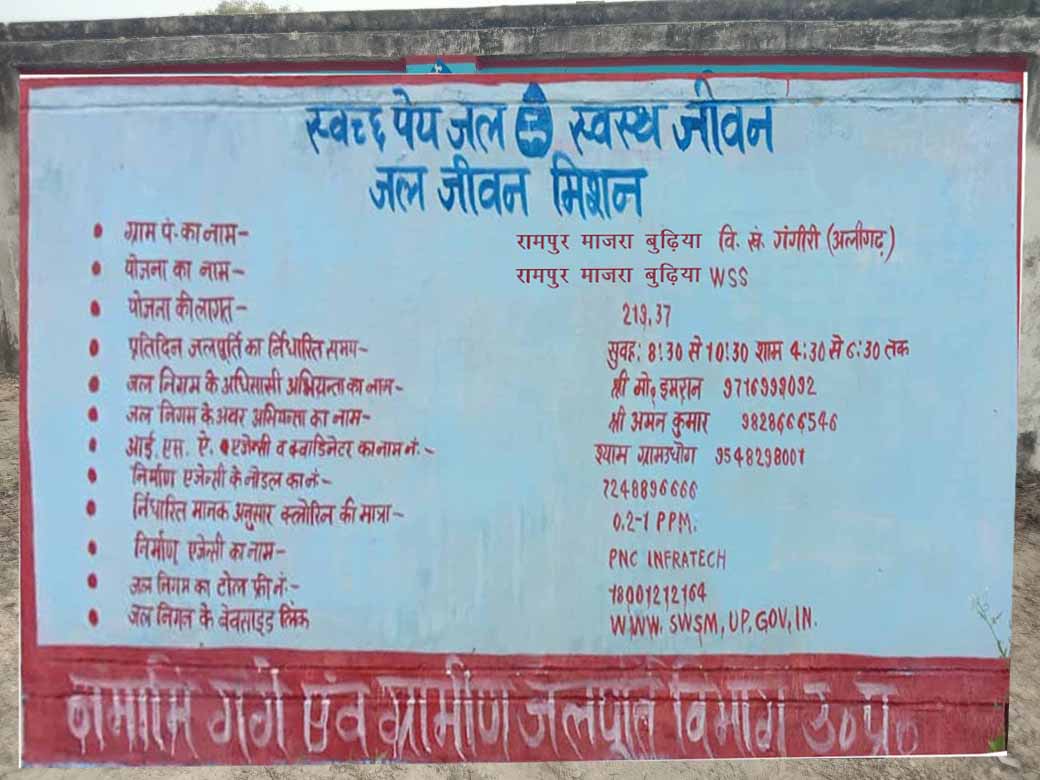 स्वच्छ पेय जल स्वस्थ जीवन
जल जीवन मिशन
• ग्राम पं. का नाम- रामपुर माजरा बुढ़िया वि. खं. गंगीरी (अलीगढ़)
• योजना का नाम- रामपुर माजरा बुढ़िया WSS
• योजना की लागत- 219,37
• प्रतिदिन जलपूर्ति का र्निधारित समय- सुवह: 8:30 से 10:30 शाम 4:30 से 6:30 तक
• जल निगम के अधिसासी अभियन्ता का नाम- श्री मो॰ इमरान 9716999092
• जल निगम के अवर अभियन्ता का नाम- श्री अमन कुमार 9828666546
• आई. एस. ऐ. एजेन्सी व क्वाडिनेटर का नाम नं.- श्याम ग्रामउधोग 9548298001
• निर्माण एजेन्सी के नोडल का नं- 7248896666
• र्निधारित मानक अनुसार क्लोरिन की मात्रा- 0.2-1 PPM.
• निर्माण एजेन्सी का नाम- PNC INFRATECH
• जल निगम का टोल फ्री नं.- 18001212164
• जल निगम के बेवसाइड लिंक WWW. SWSM, UP, GOV, IN.
नमामि गंगे एवं ग्रामीण जलपूर्ति विभाग उ०प्र०